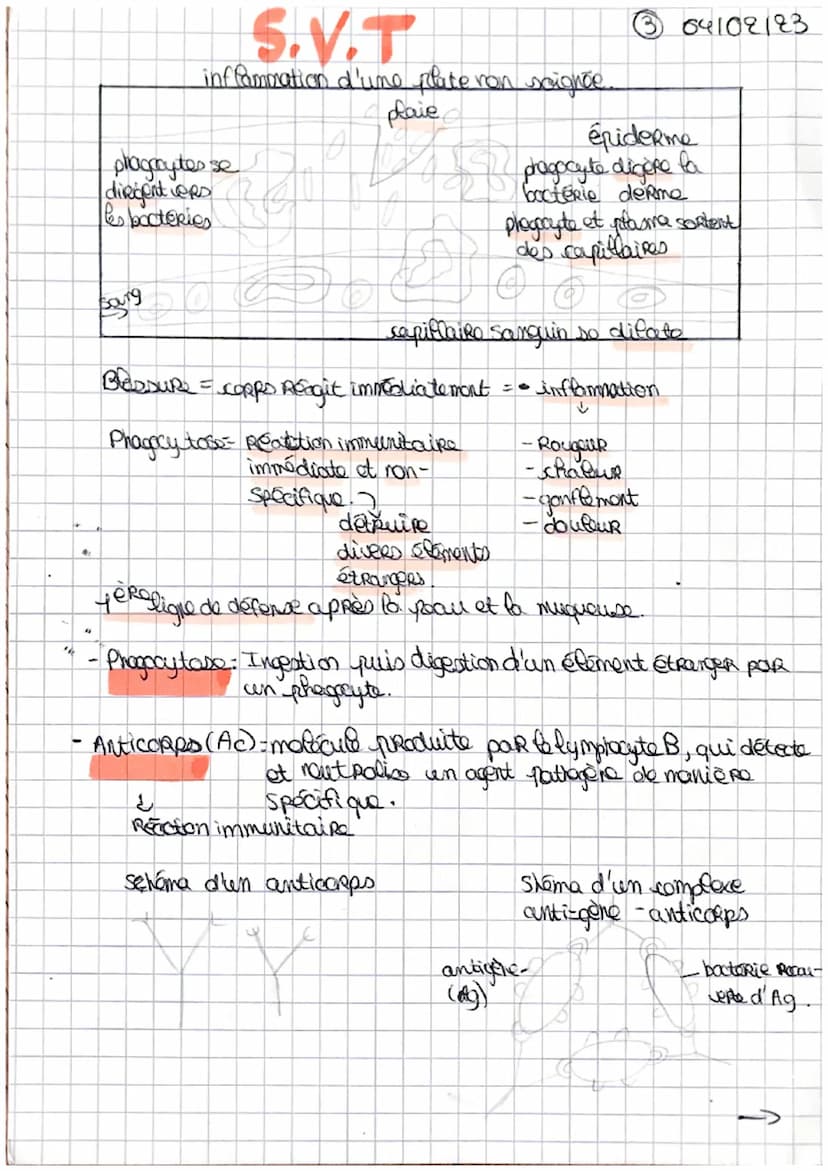 S.V.T
③ 04/02/23
inflammation d'une plaie non soignée.
plaie
épiderme
phagocytes se
dirigent vers
les bactéries
phagocyte digère la
bactérie derme
phagocyte et plasma sortent
des capillaires
sang
capillaire sanguin se dilate
Blessure = corps réagit immédiatement = • inflammation
↓
Phagocytose = Réaction immunitaire
immédiate et non-
spécifique.
détruire
divers éléments
étrangers.
- Rougeur
- chaleur
- gonflement
- douleur
1ère ligne de défense après la peau et la muqueuse.
- Phagocytose : Ingestion puis digestion d'un élément étranger par
un phagocyte.
- Anticorps (Ac) = molécule produite par le lympocyte B, qui détecte
et neutralise un agent pathogère de manière
spécifique.
↓
Réaction immunitaire
schéma d'un anticorps
shéma d'un complexe
anti-gène - anticorps
antigène-
(Ag)
bacterie recou-
verte d'Ag.
→